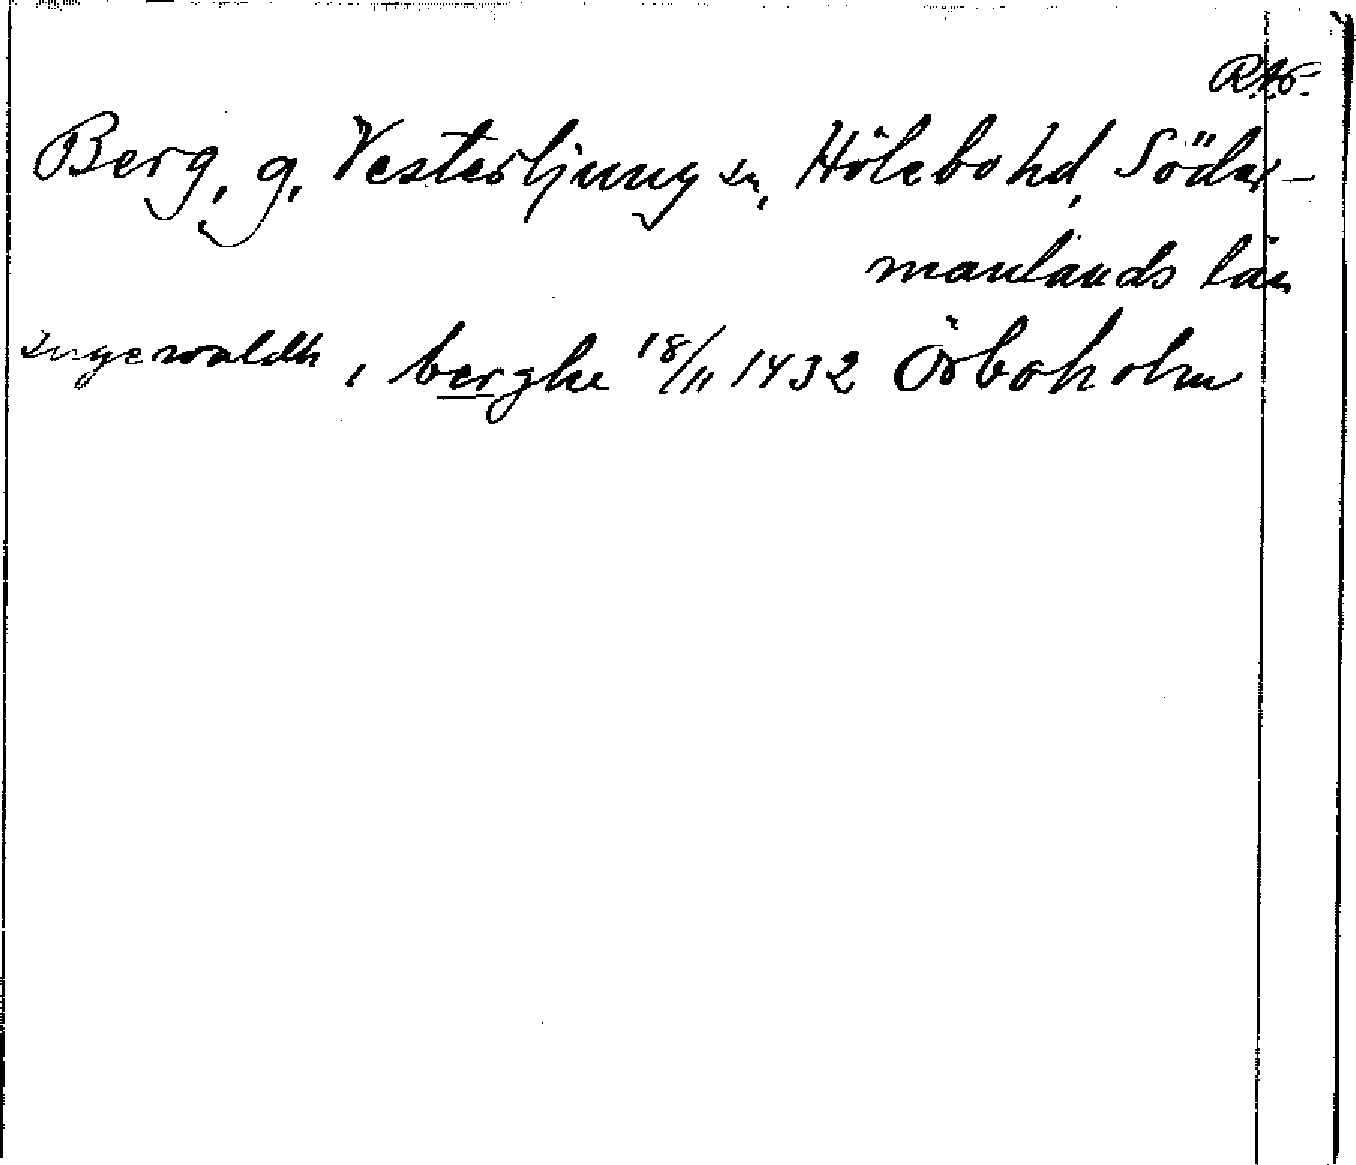 R.A.
Berg, g, Vesterljung sn, Hölebo hd, Söder-
manlands län
Ingewaldh i berghe 18/11 1432 Örboholm